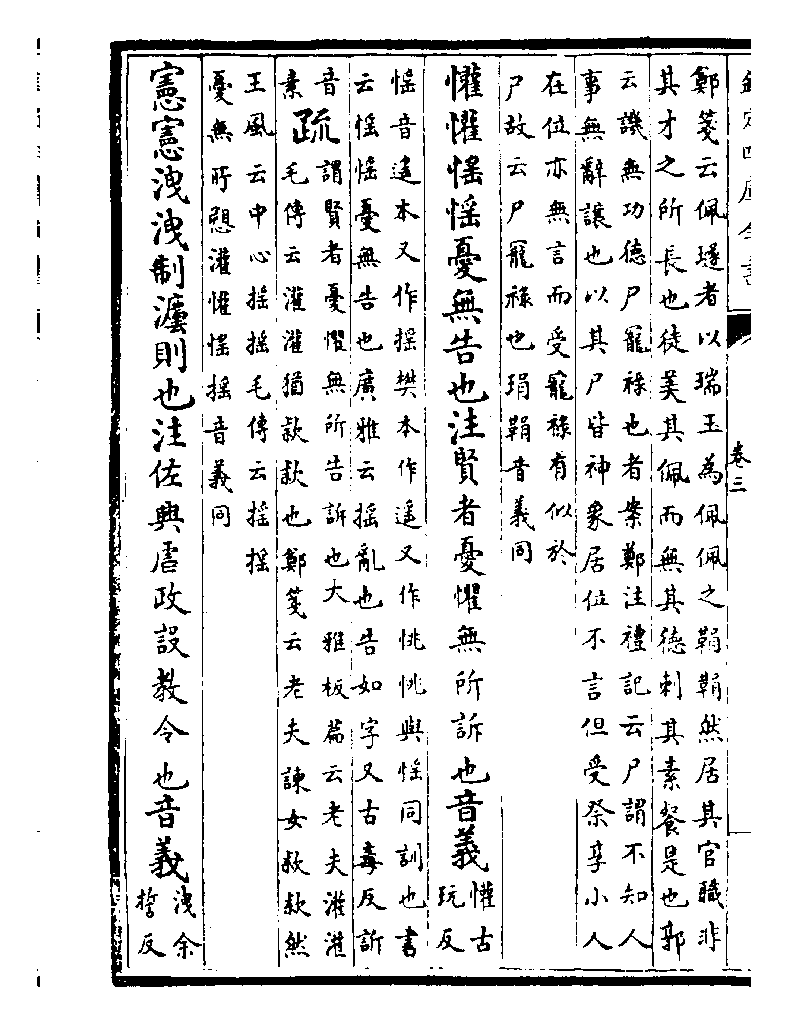 欽定四庫全書
卷三
鄭箋云佩璲者以瑞玉為佩佩之鞙鞙然居其官職非
其才之所長也徒美其佩而無其德刺其素餐是也郭
云譏無功德尸寵祿也者案鄭注禮記云尸謂不知人
事無辭讓也以其尸皆神象居位不言但受祭享小人
在位亦無言而受寵祿有似於
尸故云尸寵祿也琄鞙音義同
懽懽愮愮憂無告也注賢者憂懼無所訴也音義懽古
玩反
愮音遙本又作摇樊本作遥又作恌恌與愮同訓也書
云愮愮憂無告也廣雅云摇亂也告如字又古毒反訴
音
素疏謂賢者憂懼無所告訴也大雅板篇云老夫灌灌
毛傳云灌灌猶款款也鄭箋云老夫諫女款款然
王風云中心摇摇毛傳云摇摇
憂無所愬灌懽愮摇音義同
憲憲洩洩制灋則也注佐興虐政設教令也音義洩余
誓反